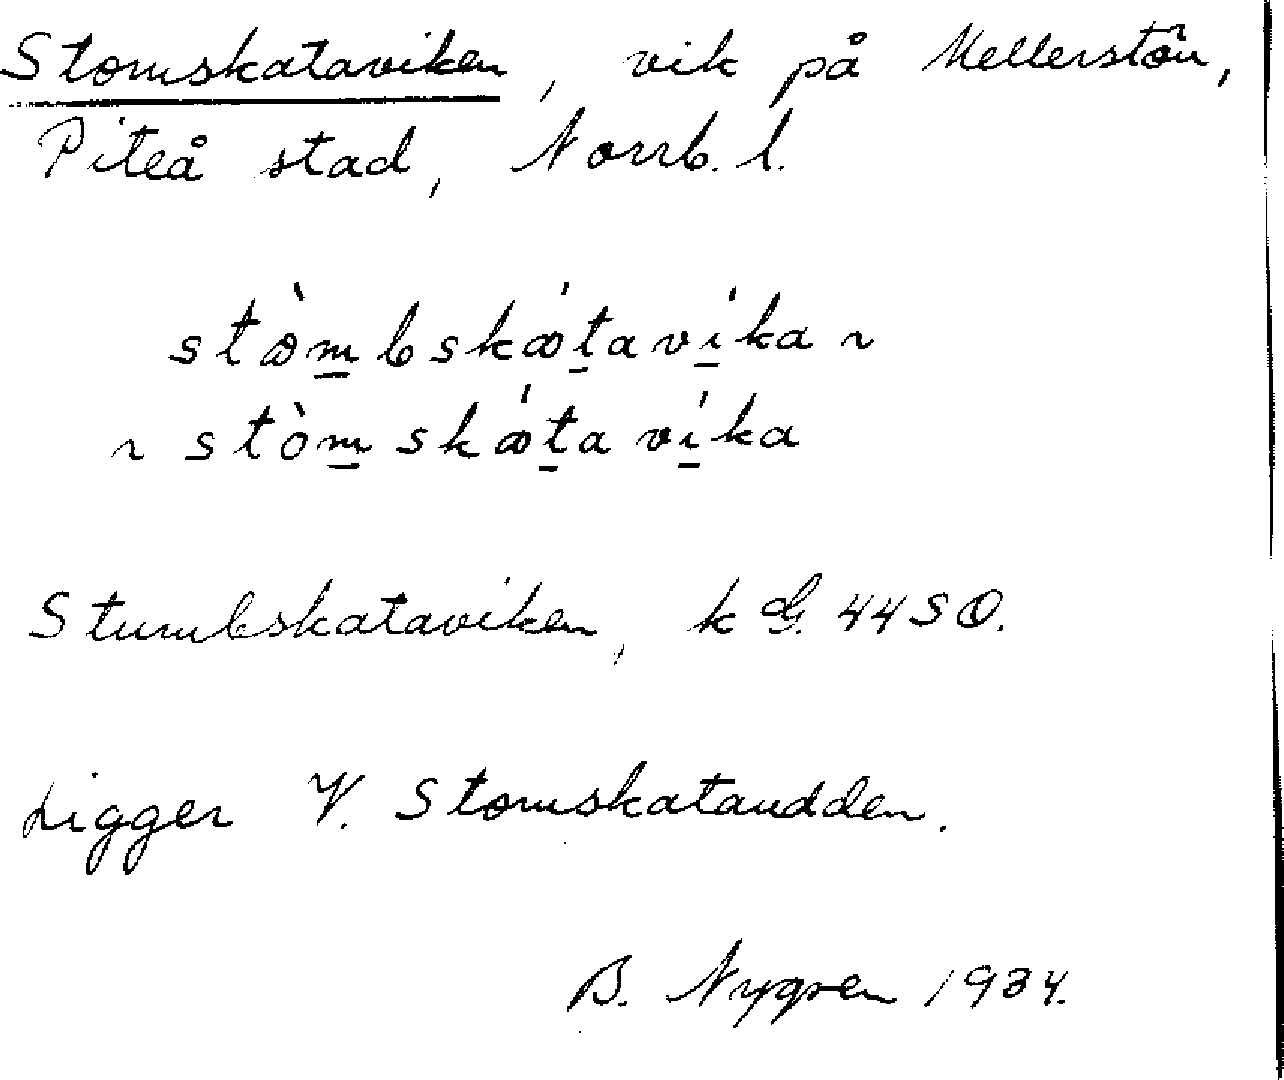 Stomskataviken, vik på Mellerstön,
Piteå stad, Norrb. l.
stòm̲bskǿt̲aví̲ka ~
~ stòm̲skǿt̲aví̲ka
Stumbskataviken, k G. 44 S O.
Ligger V. Stomskataudden.
B. Nygren 1934.